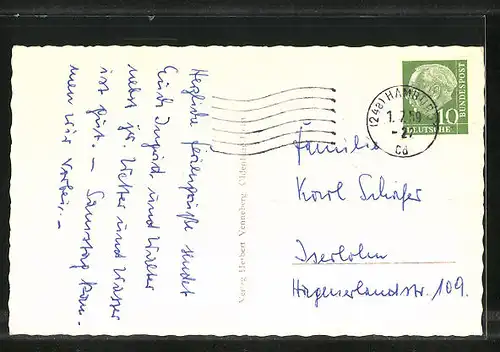 Herzliche Feriengrüße sendet
Euch Ingrid und Walter
nebst jr. Wetter und Wasser
ist gut. – Samstag kom-
men wir vorbei. –
Verlag Herbert Wenneberg, Oldenburg
(24a) HAMBURG
1.7.59
-21
cd
10
DEUTSCHE
BUNDESPOST
Familie
Karl Schäfer
Iserlohn
Hagenerlandstr. 109.